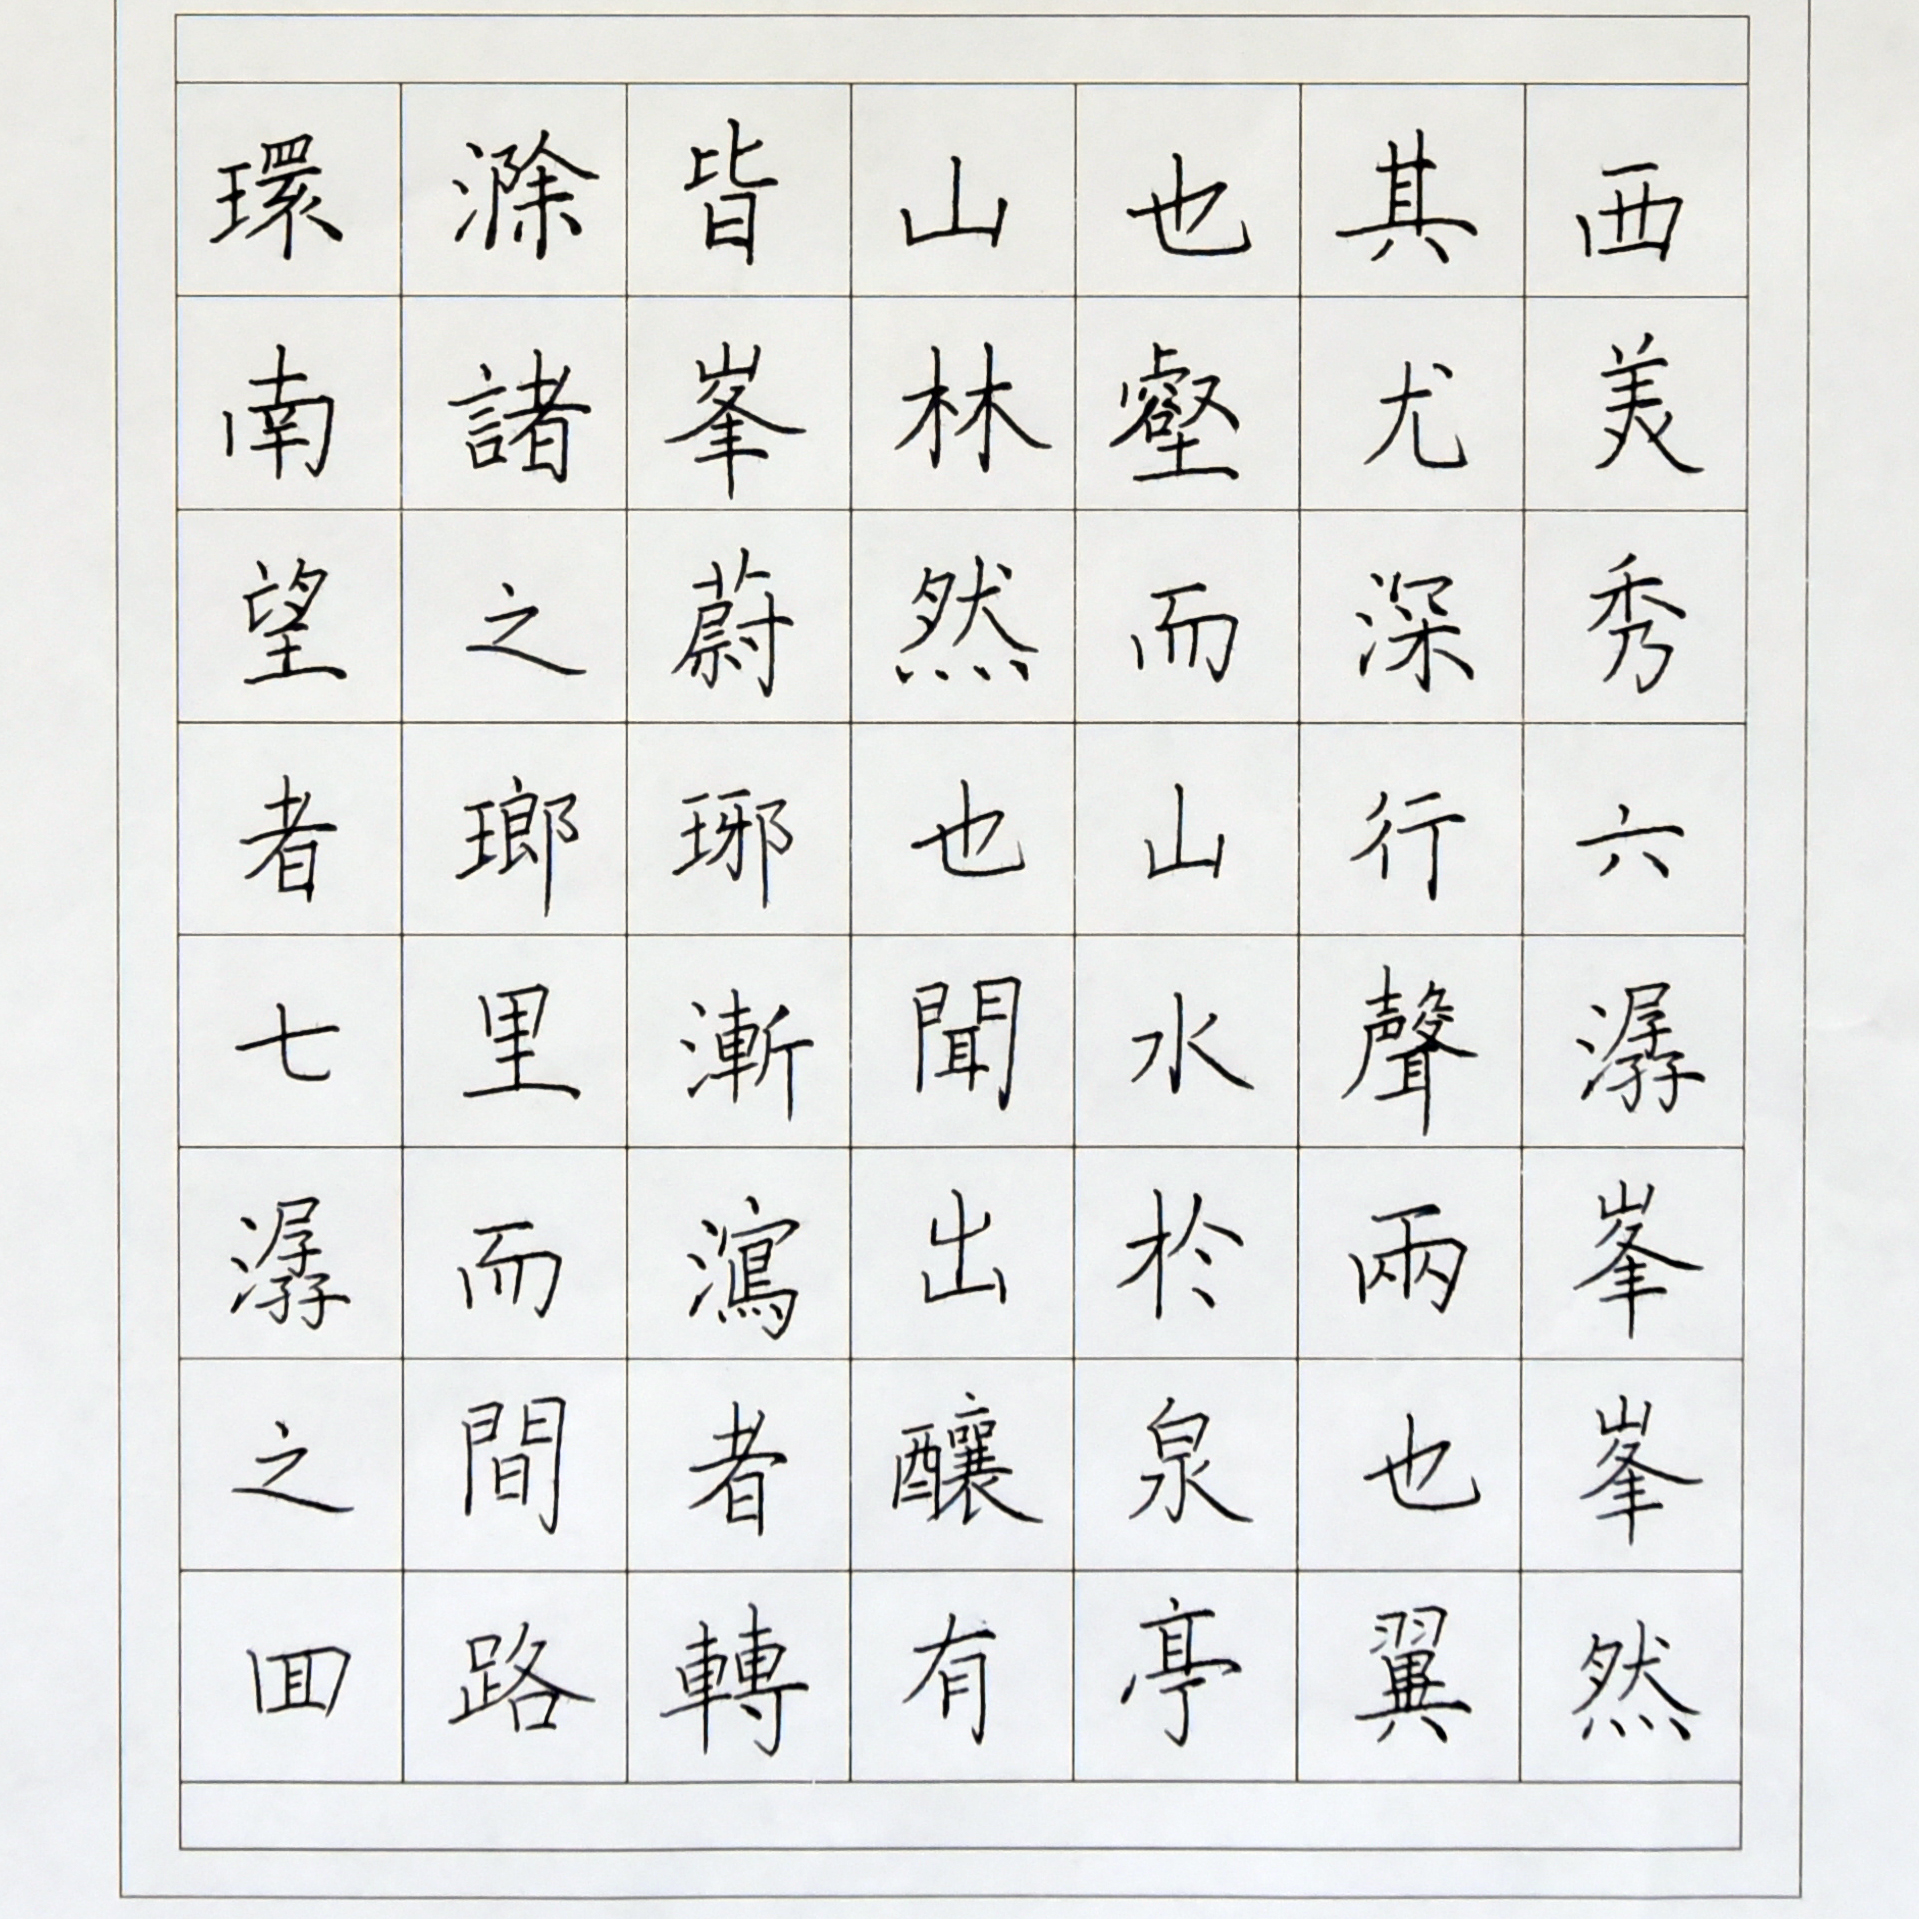 環滁皆山也其西
南諸峯林壑尤美
望之蔚然而深秀
者瑯琊也山行六
七里漸聞水聲潺
潺而瀉出於兩峯
之間者釀泉也峯
回路轉有亭翼然